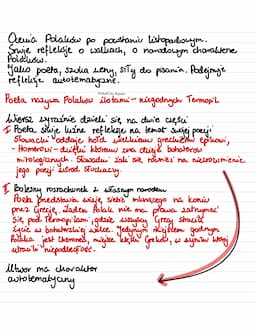 Ocenia Polaków po powstaniu listopadowym.
Snuje refleksje o walkach, o narodowym charakterze
Polaków.
Jako poeta, szuka weny, siły do pisania. Podejmuje
refleksje autotematyczne.
Poeta nazywa Polaków ilotami - niegodnych Termopil
Wiersz wyraźnie dzieli się na dwie części
I Poeta snuje luźne refleksje na temat swojej poezji
Słowacki oddaje hołd wielkiemu greckiemu epikowi,
- Homerowi - dzięki któremu zna dzieje bohaterów
mitologicznych. Słowacki żali się również na niezrozumienie
jego poezji wśród słuchaczy.
II bolesny rozrachunek z własnym narodem
Poeta przedstawia wizję, siebie mknącego na koniu
przez Grecję. Żaden Polak nie ma prawa zatrzymać
się pod Termopilami, gdzie wszyscy Grecy stracili
życie w bohaterskiej walce. Jedynym miejscem godnym
Polaka jest Cheronea, miejsce klęski Greków, w wyniku której
utracili niepodległość.
Utwór ma charakter
autotematyczny